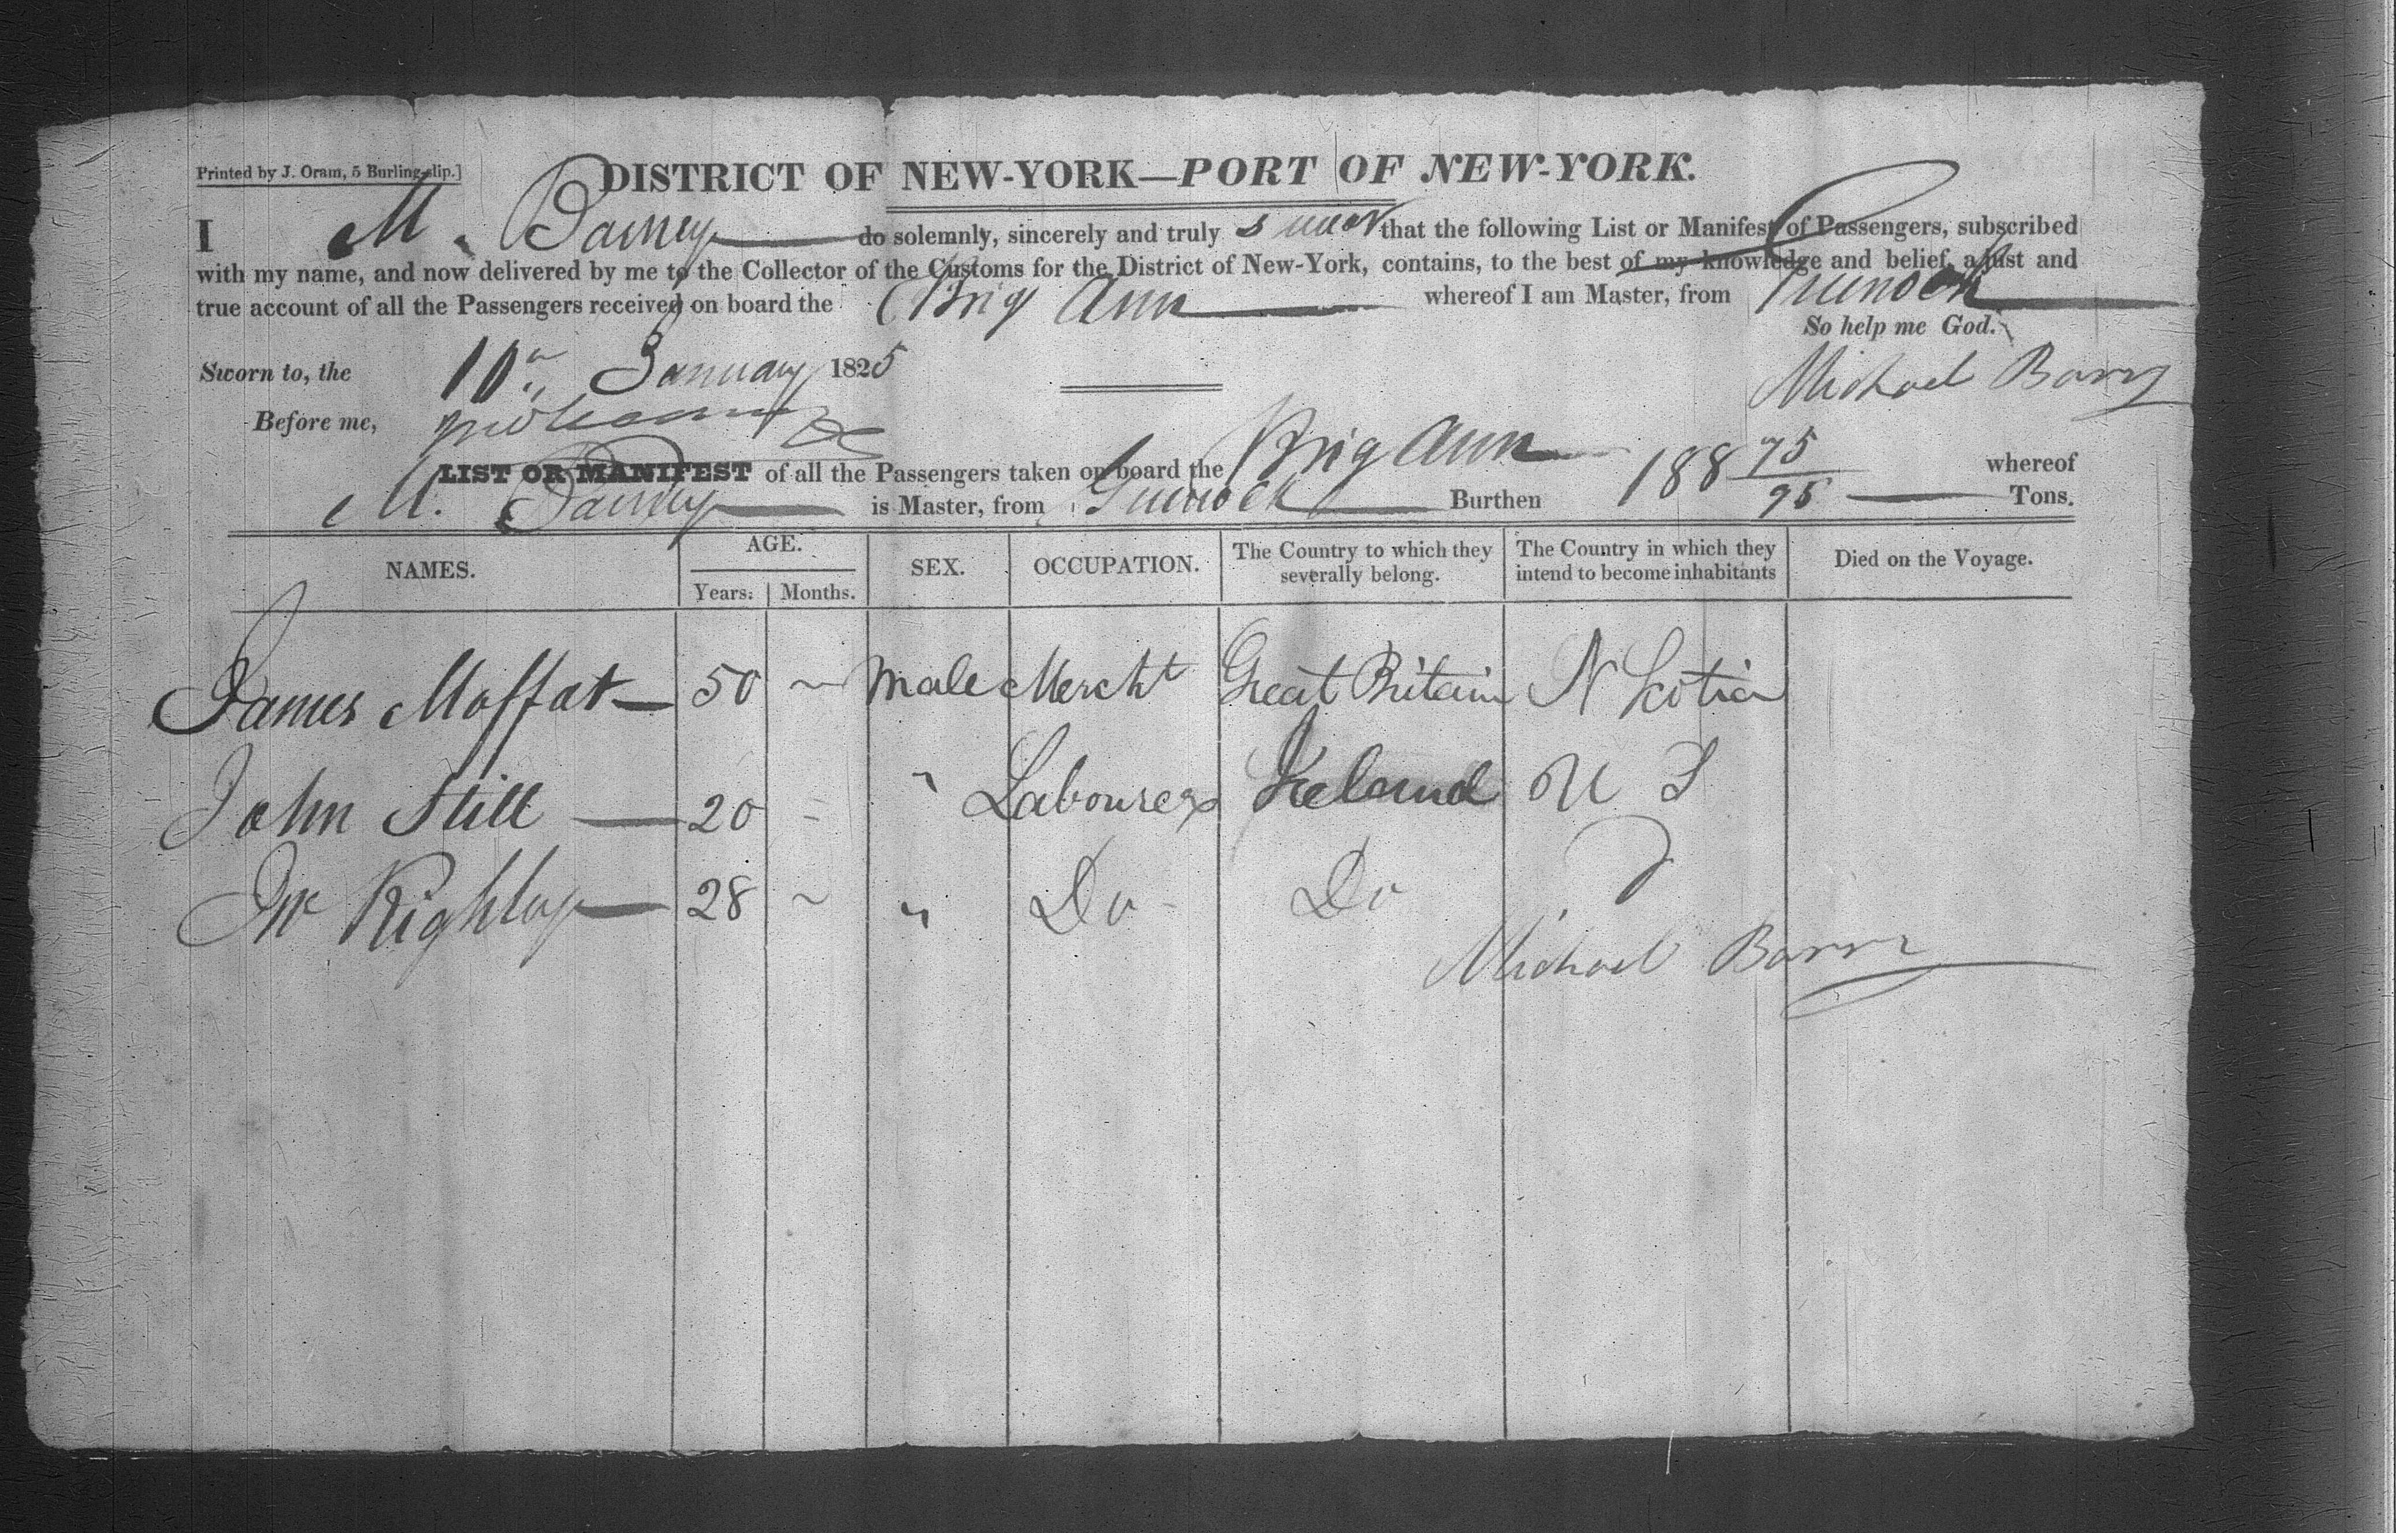 Printed by J. Oram, 5 Burling-slip.]
DISTRICT OF NEW-YORK—PORT OF NEW-YORK.
I M. Barney do solemnly, sincerely and truly swear that the following List or Manifest of Passengers, subscribed
with my name, and now delivered by me to the Collector of the Customs for the District of New-York, contains, to the best of my knowledge and belief, a just and
true account of all the Passengers received on board the Brig Ann whereof I am Master, from Greenock
So help me God.
Sworn to, the 10th January 1825
Michael Barry
Before me,
LIST OR MANIFEST of all the Passengers taken on board the Brig Ann 188 75/95 whereof
M. Barney is Master, from Greenock Burthen Tons.
NAMES. AGE. SEX. OCCUPATION. The Country to which they severally belong. The Country in which they intend to become inhabitants Died on the Voyage.
Years. Months.
James Moffat 50 ~ Male Mercht Great Britain N Scotia
John Still 20 - " Labourer Ireland U S
28 ~ " Do Do
Michael Barry